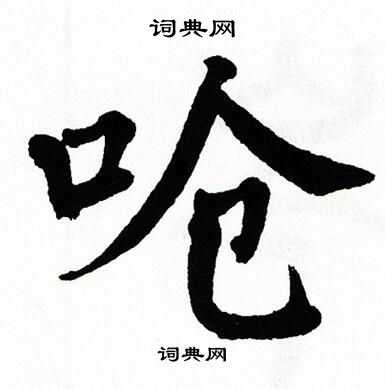 词典网
呛
词典网